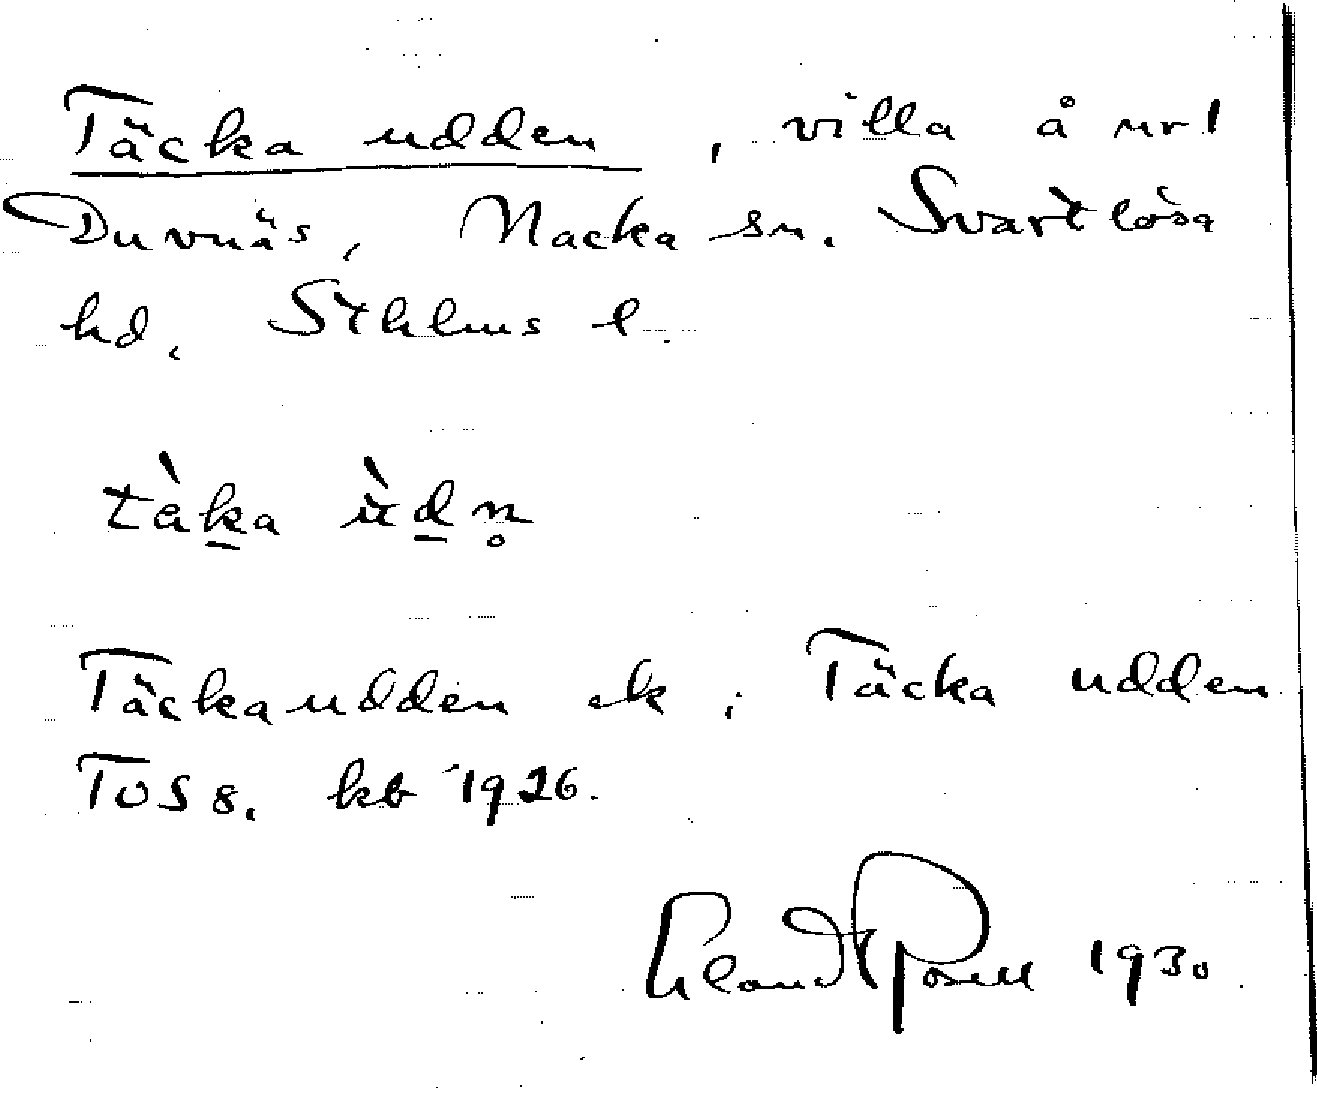 Täcka udden, villa å nr 1
Duvnäs, Nacka sn. Svartlösa
hd. Sthlms l.
tàka ùdn̥
Täckaudden ek; Täcka udden
TUS 8. kb 1926.
1930